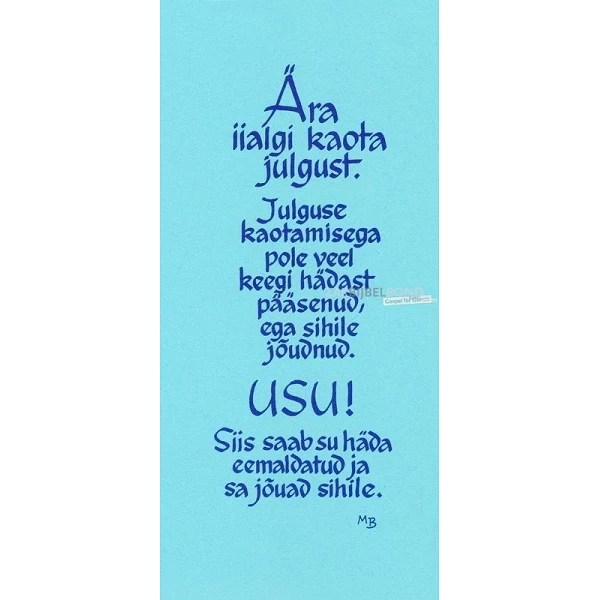 Ära
iialgi kaota
julgust.
Julguse
kaotamisega
pole veel
keegi hädast
pääsenud,
ega sihile
jõudnud.
USU!
Siis saab su häda
eemaldatud ja
sa jõuad sihile.
MB